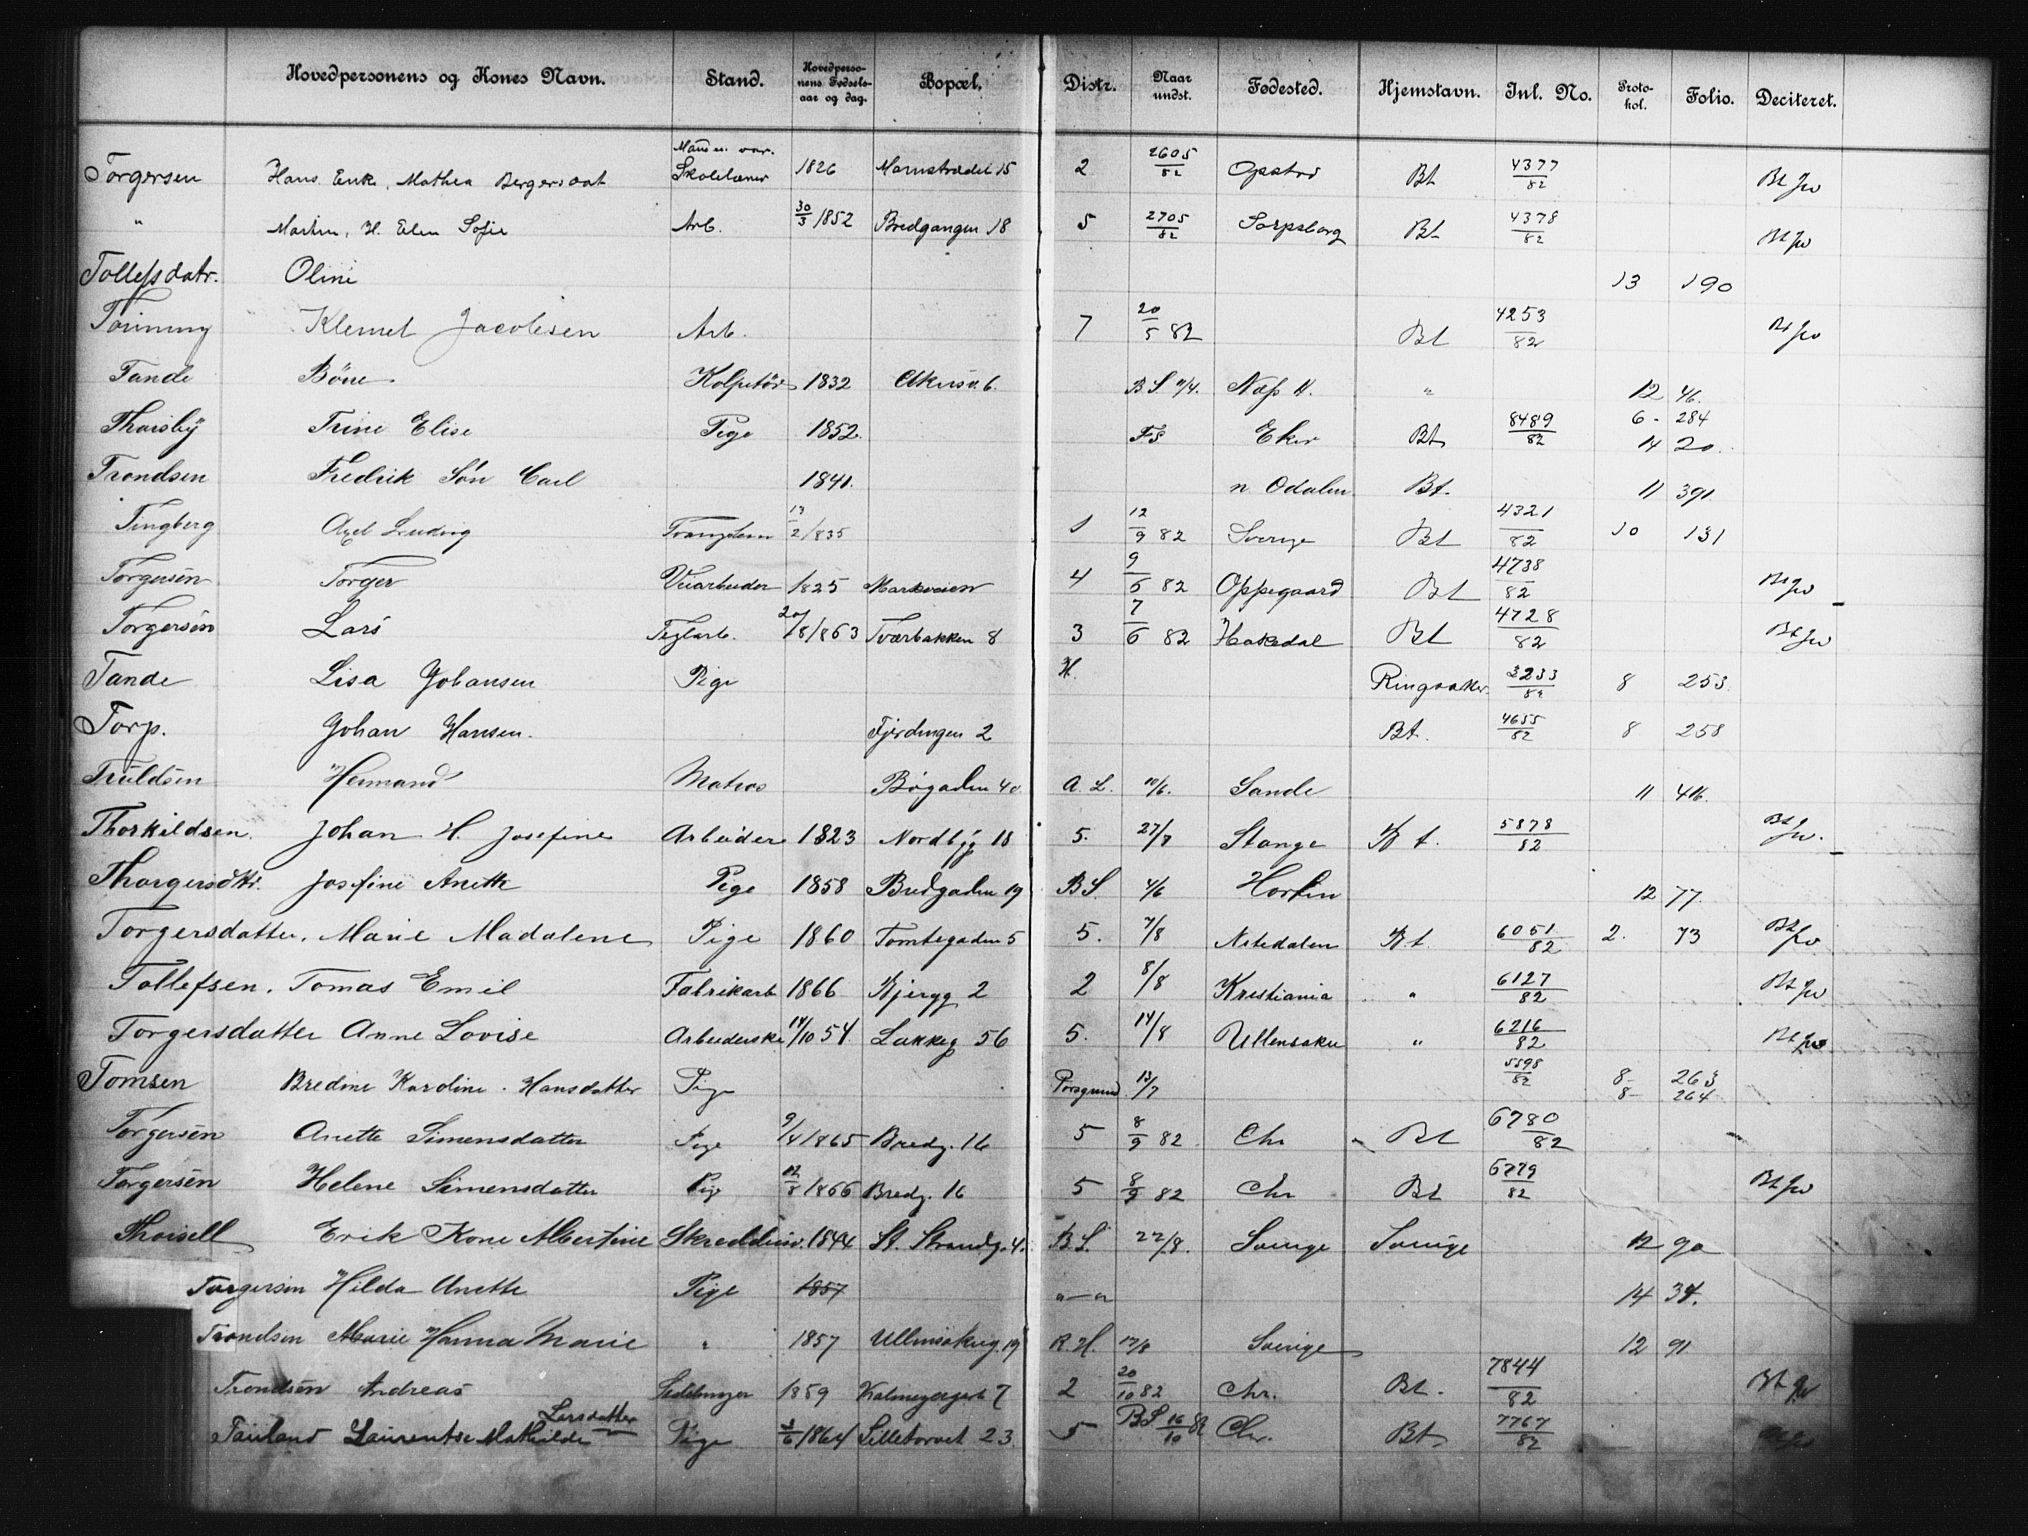 Hovedpersonens og Kones Navn. Stand. Hovedperso-nens Fødsels-aar og dag. Bopæl. Distr. Naar undst. Fødested. Hjemstavn. Inl. No. Proto-kol. Folio. Deciteret.
Torgersen Hans Enke, Mathea Bergersdat Manden var Skolelærer 1826 15 2 2605/82 Bt 4377/82 Bt
" Martin, H. Elen Sofie Arb. 30/3 1852 Bredgangen 18 5 2705/82 Sarpsborg Bt 4378/82 Bt
Tollefsdatr. Oline 13 190
Klemet Jacobsen Arb. 7 20/5 82 Bt 4253/82 Bt
Tande Kolportør 1832 Akersv. 6. B S Næs H. " 12 46.
Thorsby Trine Elise Pige 1852 FS Eker Bt 8489/82 6 - 284
14 20.
Trondsen Fredrik Søn Carl 1841. n Odalen Bt. 11 391
Tingberg Axel Ludvig 13/2 1835 1 12/9 82 Sverige Bt 4321/82 10 131
Torgersen Torger Veiarbeider 1825 Markveien 4 9/6 82 Oppegaard Bt 4738/82 Bt
Torgersen Lars Teglarb. 20/8 1863 Tværbakken 8 3 7/6 82 Hakedal Bt 4728/82 Bt
Tande Lisa Johansen Pige H. Ringsaker 3233/82 8 253.
Torp. Johan Hansen. Fjerdingen 2 Bt. 4655/82 8 258
Truldsen Hermand Matros Bøgaden 40 A. L. 10/6. Sande 11 416.
Thorkildsen. Johan H. Josefine Arbeider 1823 Nordbyg 18 5. 27/7 Stange Bt. 5878/82 Bt
Thorgersdtr. Josefine Anette Pige 1858 Bredgaden 19 BS. 4/6 12 77.
Torgersdatter, Marie Madalene Pige 1860 Tomtegaden 5 5. 7/8 Nitedalen Bt. 6051/82 2. 73 Bt
Tollefsen. Tomas Emil Fabrikarb 1866 Bjergg 2 2 8/8 Kristiania " 6127/82 Bt
Torgersdatter Anne Lovise Arbeiderske 14/10 54 Lakkeg 56 5. 14/8 Ullensaker " 6216/82 Bt
Tomsen Bredine Karoline. Hansdatter Pige Porsgrund 13/7 5598/82 8- 263
8- 264
Torgersen Anette Simensdatter Pige 9/4 1865 Bredg. 16 5 8/9 82 Chr Bt 6780/82
Torgersen Helene Simensdatter Pige 12/8 1866 Bredg. 16 5 8/9 82 Chr Bt 6779/82 Bt
Thorsell Erik Kone Albertine Skreddersv. 1844 St. Strandg. 4. B.S. 22/8. Sverige Sverige 12 90
Torgersen Hilda Anette Pige 1857 " — " 14 34.
Trondsen Marie Hanna Marie " 1857 Ullensakerg. 19 R.H. 17/8 Sverige 12 91
Trondsen Andreas 1859 Kalmeyergade 7 2 20/10 82 Chr. Bt. 7844/82 Bt
Tauland Laurentse Mathilde Larsdatter Pige 3/6 1864 Lilletorvet 23. 5 BS 16/10 82 Chr. Bt 7767/82